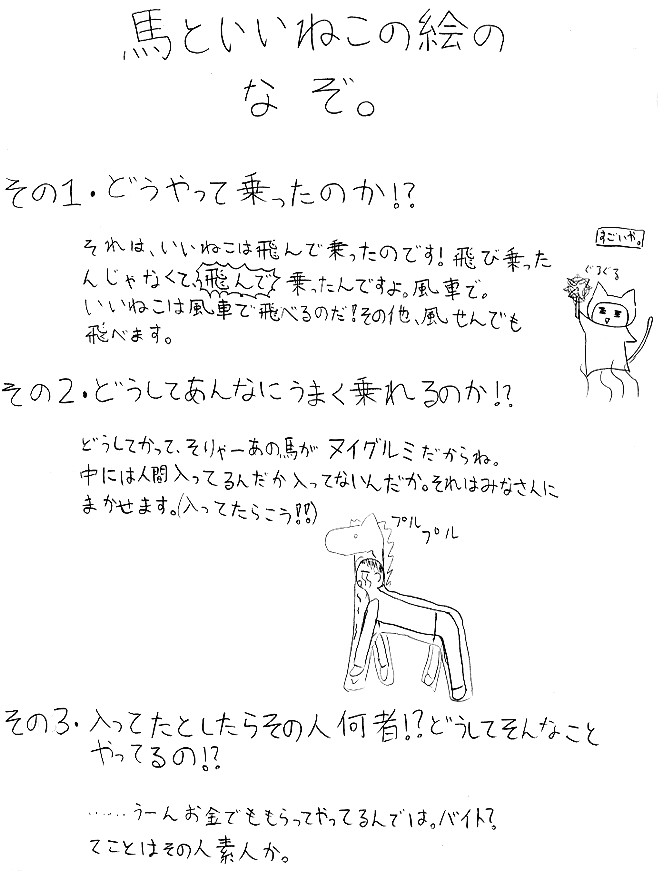 馬といいねこの絵の
なぞ。
その1・どうやって乗ったのか!?
それは、いいねこは飛んで乗ったのです!飛び乗った
んじゃなくて、飛んで乗ったんですよ。風車で。
いいねこは風車で飛べるのだ!その他、風せんでも
飛べます。
すごいや。
ぐるぐる
その2・どうしてあんなにうまく乗れるのか!?
どうしてかって、そりゃーあの馬がヌイグルミだからね。
中には人間入ってるんだか入ってないんだか。それはみなさんに
まかせます。(入ってたらこう!!)
プル
プル
その3・入ってたとしたらその人何者!?どうしてそんなこと
やってるの!?
……うーんお金でももらってやってるんでは。バイト?
てことはその人素人か。